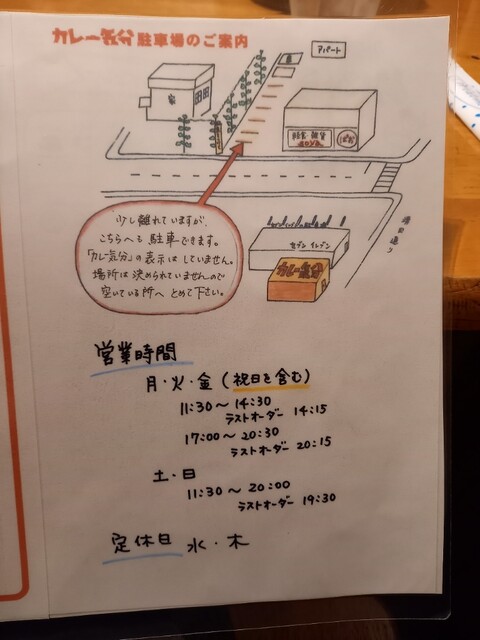 カレー気分 駐車場のご案内
アパート
家
雑貨
少し離れていますが、
こちらへも 駐車できます。
「カレー気分」の表示は していません。
場所は 決められていませんので
空いている所へ とめて下さい。
セブン イレブン
カレー気分
営業時間
月・火・金 (祝日を含む)
11:30～14:30
ラストオーダー 14:15
17:00～20:30
ラストオーダー 20:15
土・日
11:30～20:00
ラストオーダー 19:30
定休日 水・木